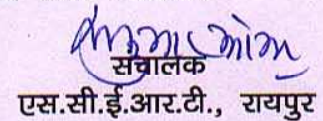 संचालक
एस.सी.ई.आर.टी., रायपुर